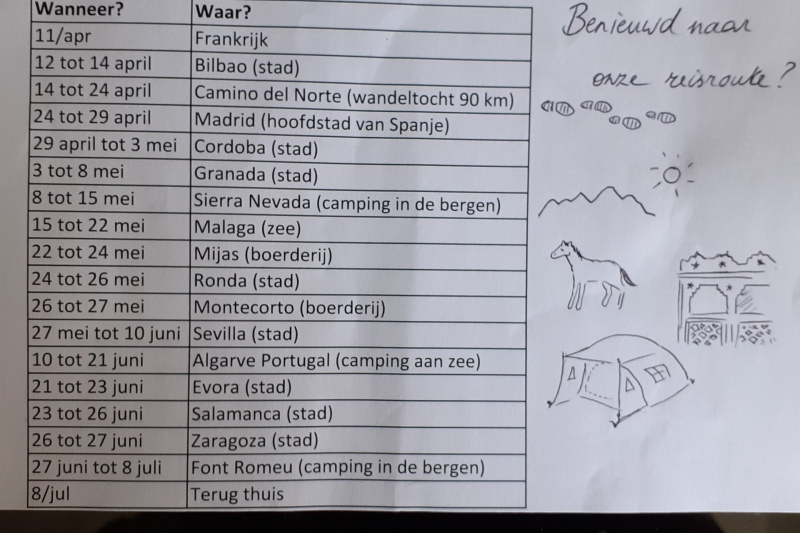 Wanneer? Waar?
11/apr Frankrijk
12 tot 14 april Bilbao (stad)
14 tot 24 april Camino del Norte (wandeltocht 90 km)
24 tot 29 april Madrid (hoofdstad van Spanje)
29 april tot 3 mei Cordoba (stad)
3 tot 8 mei Granada (stad)
8 tot 15 mei Sierra Nevada (camping in de bergen)
15 tot 22 mei Malaga (zee)
22 tot 24 mei Mijas (boerderij)
24 tot 26 mei Ronda (stad)
26 tot 27 mei Montecorto (boerderij)
27 mei tot 10 juni Sevilla (stad)
10 tot 21 juni Algarve Portugal (camping aan zee)
21 tot 23 juni Evora (stad)
23 tot 26 juni Salamanca (stad)
26 tot 27 juni Zaragoza (stad)
27 juni tot 8 juli Font Romeu (camping in de bergen)
8/jul Terug thuis
Benieuwd naar
onze reisroute?